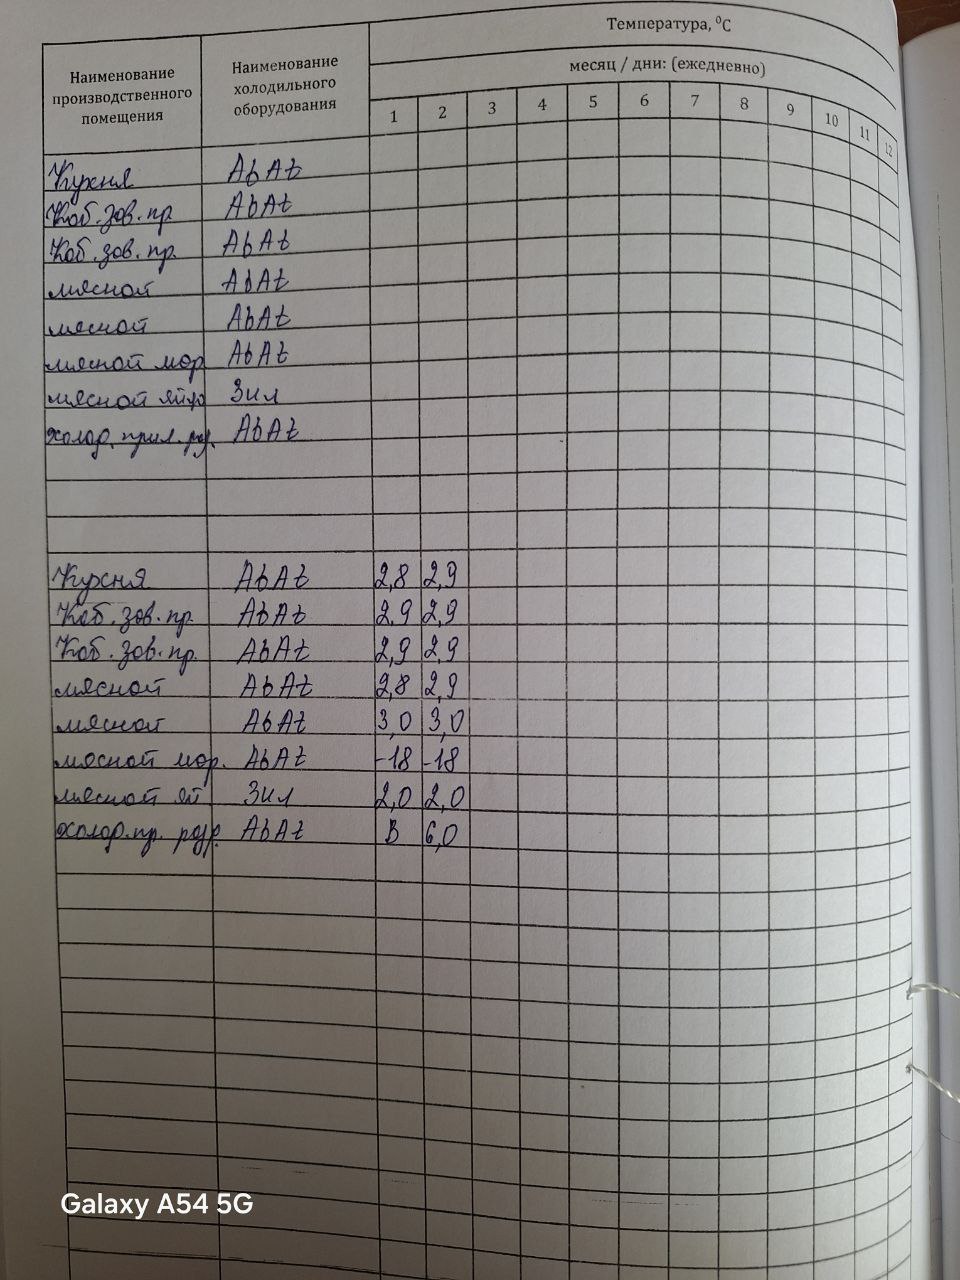 Температура, ⁰С
Наименование производственного помещения
Наименование холодильного оборудования
месяц / дни: (ежедневно)
1 2 3 4 5 6 7 8 9 10 11 12
Кухня AbAt
Каб. зав. пр AbAt
Каб. зав. пр. AbAt
мясной AbAt
мясной AbAt
мясной мор AbAt
мясной яйцо Зил
холод. AbAt
Кухня AbAt 2,8 2,9
Каб. зав. пр. AbAt 2,9 2,9
Каб. зав. пр. AbAt 2,9 2,9
мясной AbAt 2,8 2,9
мясной AbAt 3,0 3,0
мясной мор. AbAt -18 -18
мясной яй Зил 2,0 2,0
холод. пр. AbAt В 6,0
Galaxy A54 5G